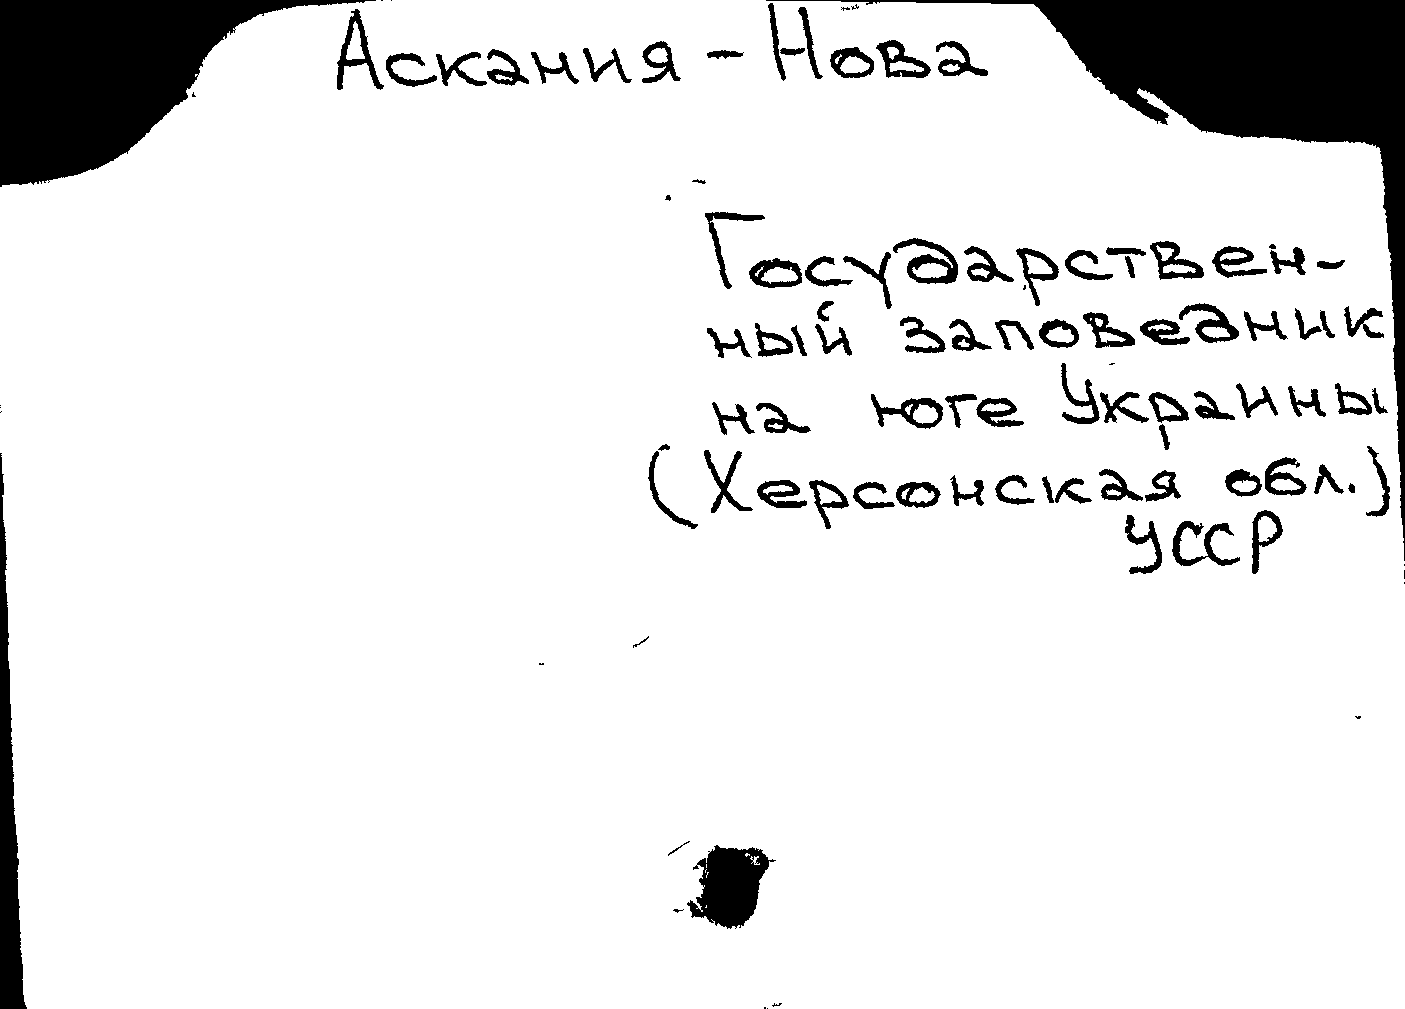 Аскания - Нова
Государствен-
ный заповедник
на юге Украины
(Херсонская обл.)
УССР